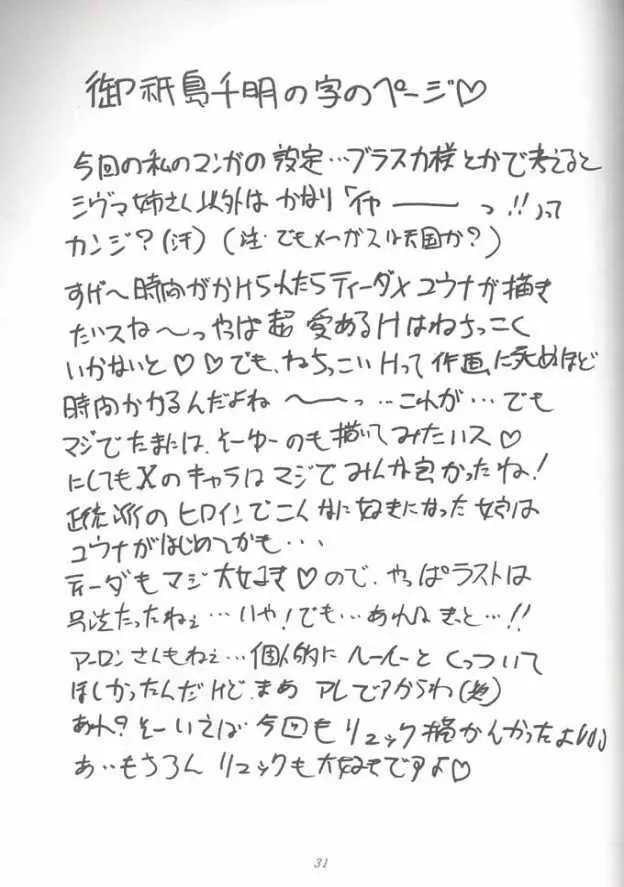 御祇島千明の字のページ♡
今回の私のマンガの設定…ブラスカ様とかで考えると
シヴァ姉さん以外はかなり「イヤーーーっ!!」って
カンジ?(汗)(注・でもメーガスは天国か?)
すげ〜時間がかけられたらティーダ×ユウナが描き
たいスね〜っやっぱ超愛あるHはねちっこく
いかないと♡♡でも、ねちっこいHって作画に死ぬほど
時間かかるんだよね〜ーっ…これが…でも
マジでたまには、そーゆーのも描いてみたいス♡
にしてもXのキャラはマジでみんな良かったね!
正統派のヒロインでこんなに好きになった娘は
ユウナがはじめてかも・・・
ティーダもマジ大好き♡ので、やっぱラストは
号泣だったねぇ…いや!でも…あれはきっと…!!
アーロンさんもねぇ…個人的にルールーとくっついて
ほしかったんだけど、まあ アレですからね
あれ?そーいえば今回もリュック描かんかったよ
あ…もちろんリュックも大好きですよ♡
31